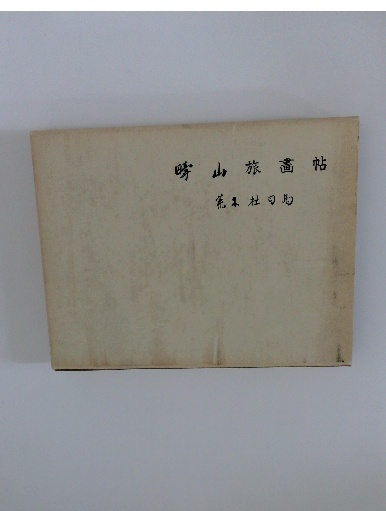 山旅畫帖
荒木杜司馬